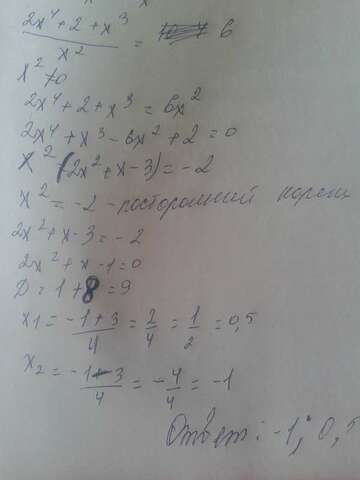 2x⁴+2+x³ / x² = 6
x² ≠ 0
2x⁴+2+x³ = 6x²
2x⁴+x³-6x²+2=0
x²(2x²+x-3)=-2
x² = -2 - посторонний корень
2x²+x-3=-2
2x²+x-1=0
D=1+8=9
x₁ = -1+3 / 4 = 2/4 = 1/2 = 0,5
x₂ = -1-3 / 4 = -4/4 = -1
Ответ: -1; 0,5